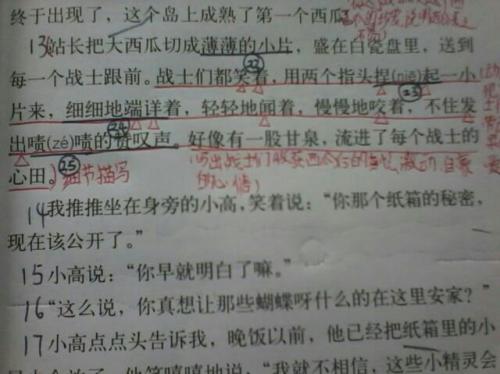 终于出现了，这个岛上成熟了第一个西瓜
13站长把大西瓜切成薄薄的小片，盛在白瓷盘里，送到
22
每一个战士跟前。战士们都笑着，用两个指头捏(niē)起一小
23
片来，细细地端详着，轻轻地闻着，慢慢地咬着，不住发
24
出啧(zé)啧的赞叹声。好像有一股甘泉，流进了每个战士的
25
心田。细节描写
写出战士们收获西瓜后的
14我推推坐在身旁的小高，笑着说：“你那个纸箱的秘密，
现在该公开了。”
15小高说：“你早就明白了嘛。”
16“这么说，你真想让那些蝴蝶呀什么的在这里安家？”
17小高点点头告诉我，晚饭以前，他已经把纸箱里的小
他笑嘻嘻地说：“我就不相信，这些小精灵会